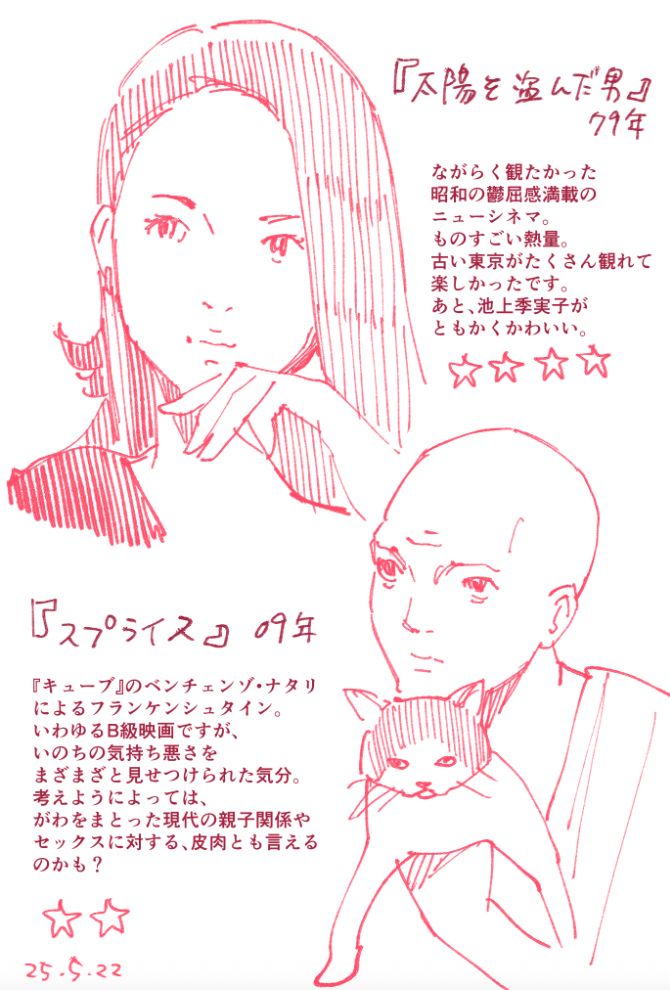 『太陽を盗んだ男』
79年
ながらく観たかった
昭和の鬱屈感満載の
ニューシネマ。
ものすごい熱量。
古い東京がたくさん観れて
楽しかったです。
あと、池上季実子が
ともかくかわいい。
☆☆☆☆
『スプライス』 09年
『キューブ』のベンチェンゾ・ナタリ
によるフランケンシュタイン。
いわゆるB級映画ですが、
いのちの気持ち悪さを
まざまざと見せつけられた気分。
考えようによっては、
がわをまとった現代の親子関係や
セックスに対する、皮肉とも言える
のかも？
☆☆
25.5.22